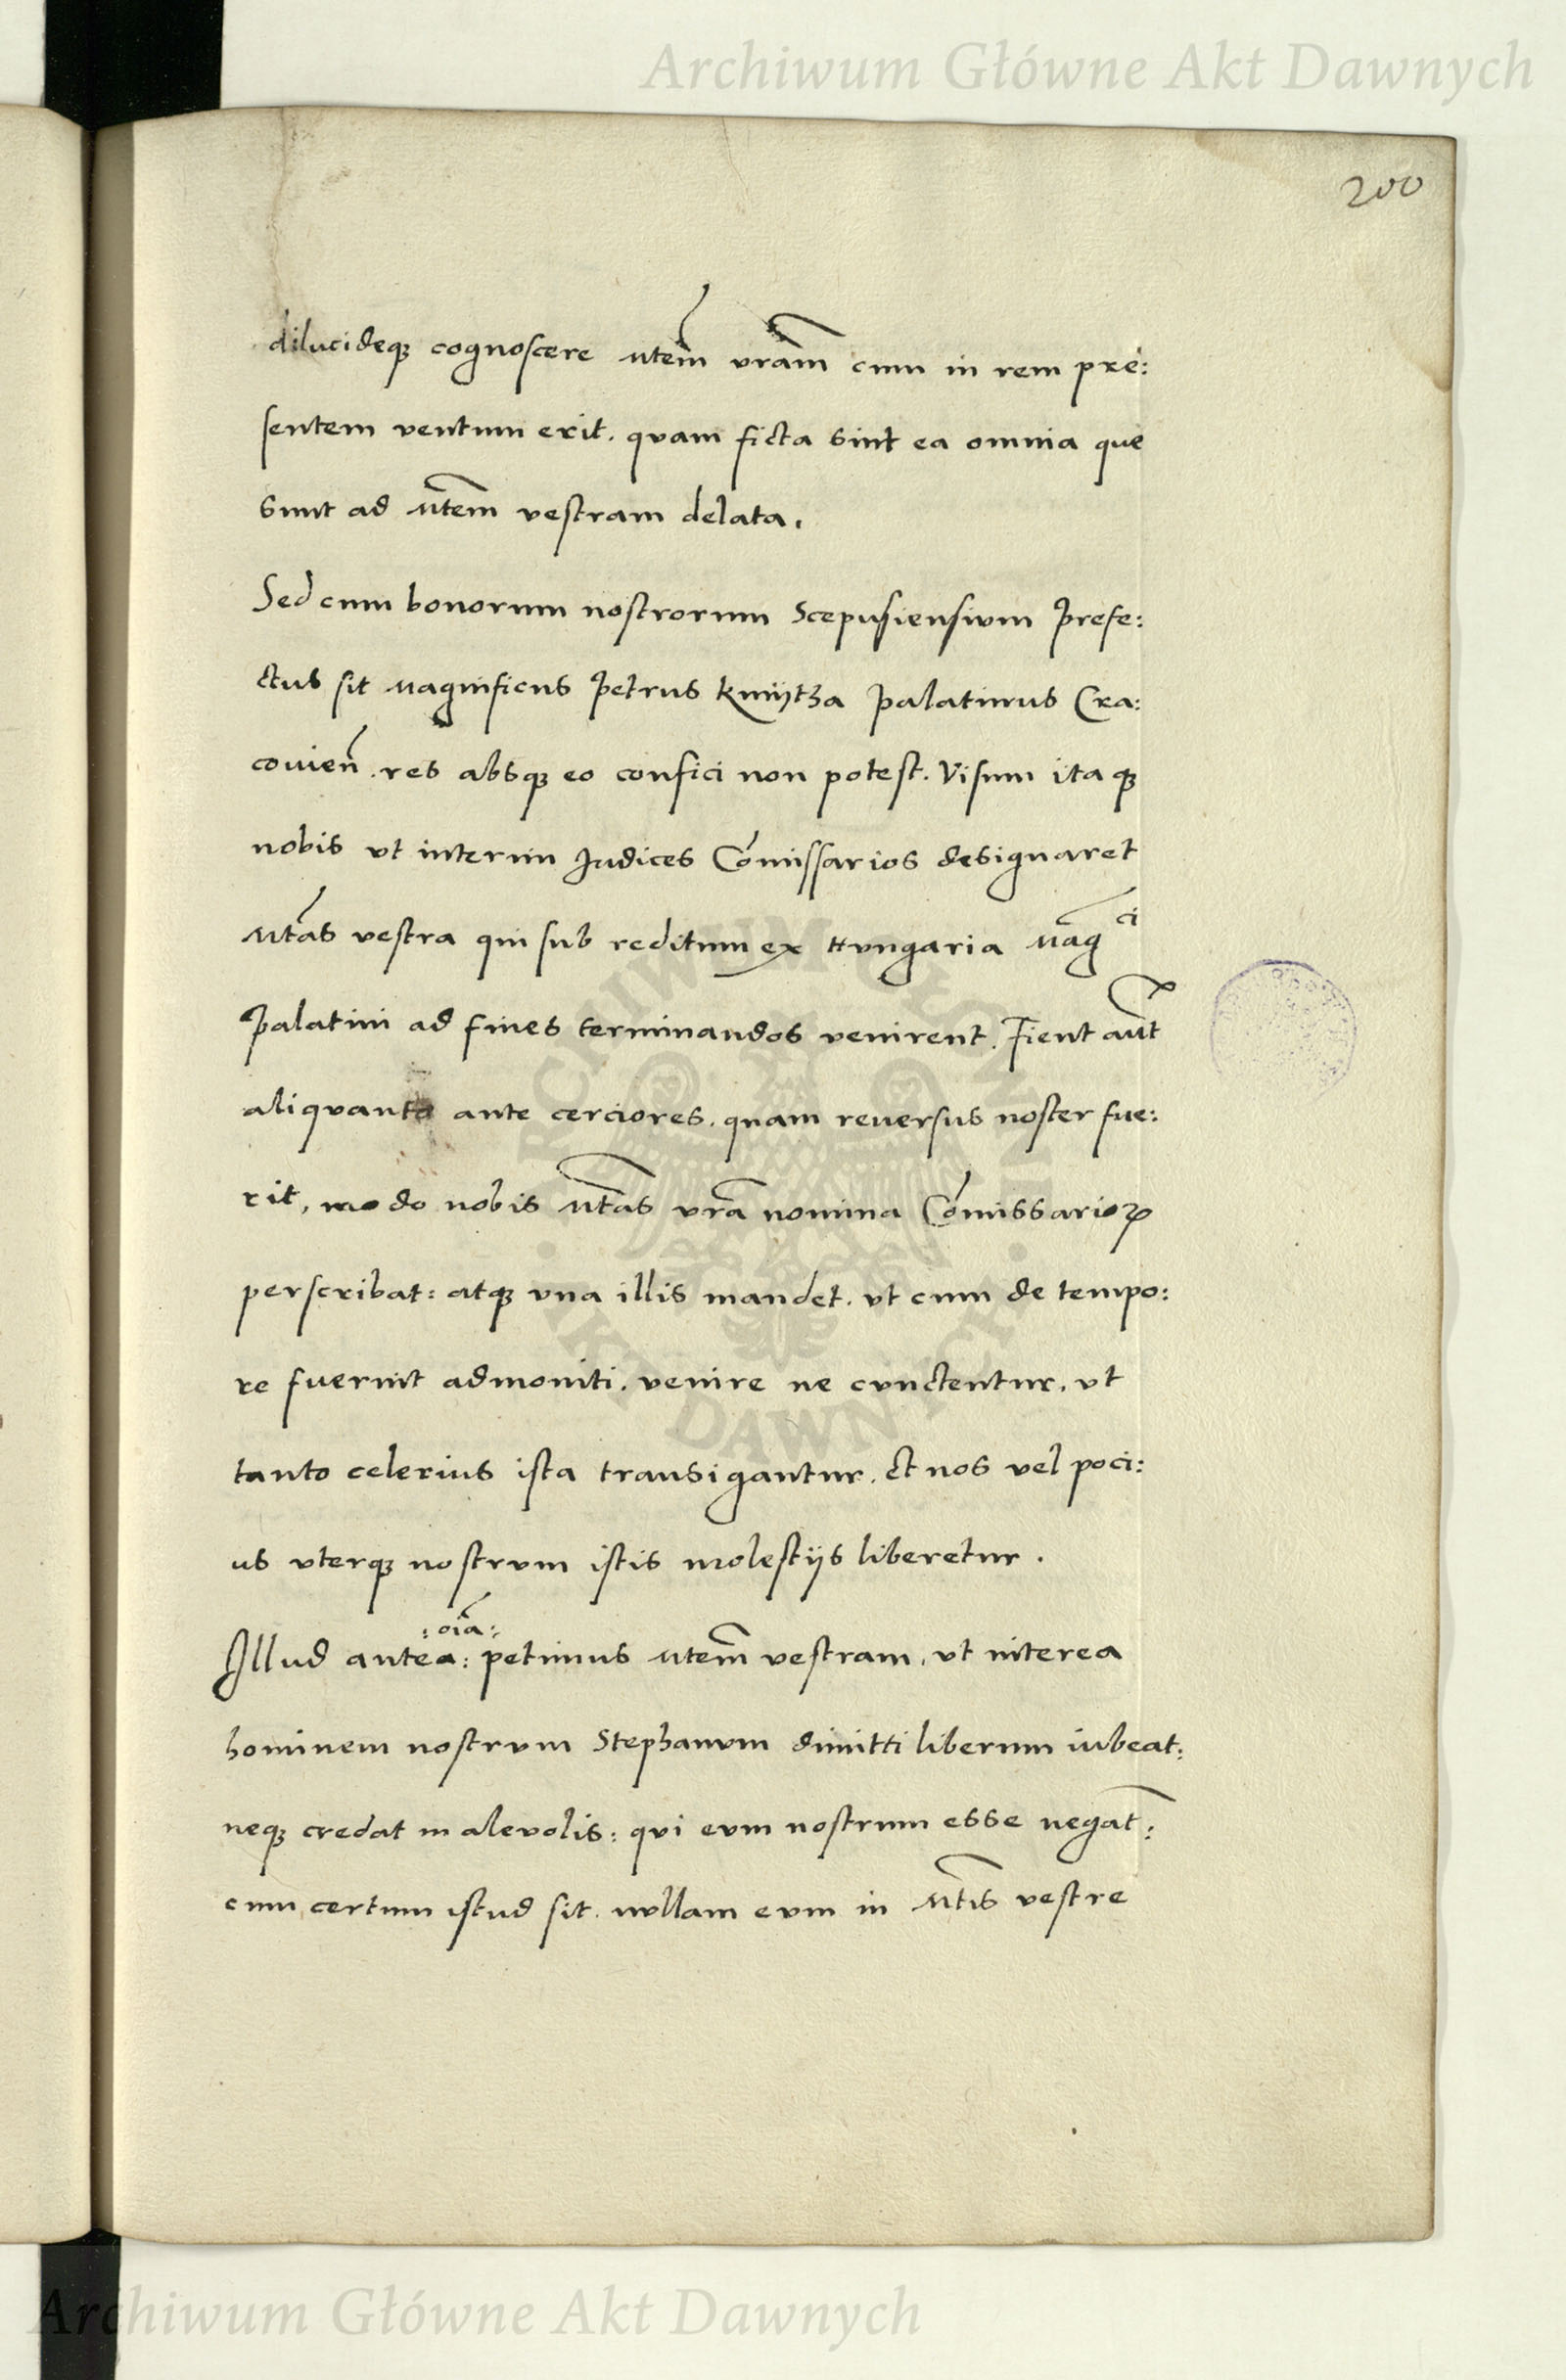 Archiwum Główne Akt Dawnych
200
dilucideqꝫ cognoscere Mtem̄ vrām cum in rem pre:
sentem ventum erit. quam ficta sint ea omnia que
sunt ad Mtem̄ vestram delata.
Sed cum bonorum nostrorum Scepusiensium Prefe:
ctus sit Magnificus Petrus Kmijtha Palatinus Cra:
couien̄. res absqꝫ eo confici non potest. Visum itaqꝫ
nobis vt interim Judices Cōmissarios designaret
Mtās vestra qui sub reditum ex Hungaria Maḡci
Palatini ad fines terminandos venirent. Fient aūt
aliquanto ante cerciores. quam reuersus noster fue:
rit, modo nobis Mtās vrā nomina Cōmissarioꝝ
perscribat: atqꝫ vna illis mandet. vt cum de tempo:
re fuerint admoniti. venire ne cunctentur. vt
tanto celerius ista transigantur. et nos vel poci:
us vterqꝫ nostrum istis molestijs liberetur.
:oīa:
Illud antea: petimus Mtem̄ vestram, vt interea
hominem nostrum Stephanum dimitti liberum iubeat:
neqꝫ credat malevolis: qui eum nostrum esse negāt:
cum certum istud sit. nullam eum in Mtīs vestre
ARCHIWUM GŁÓWNE AKT DAWNYCH
Archiwum Główne Akt Dawnych